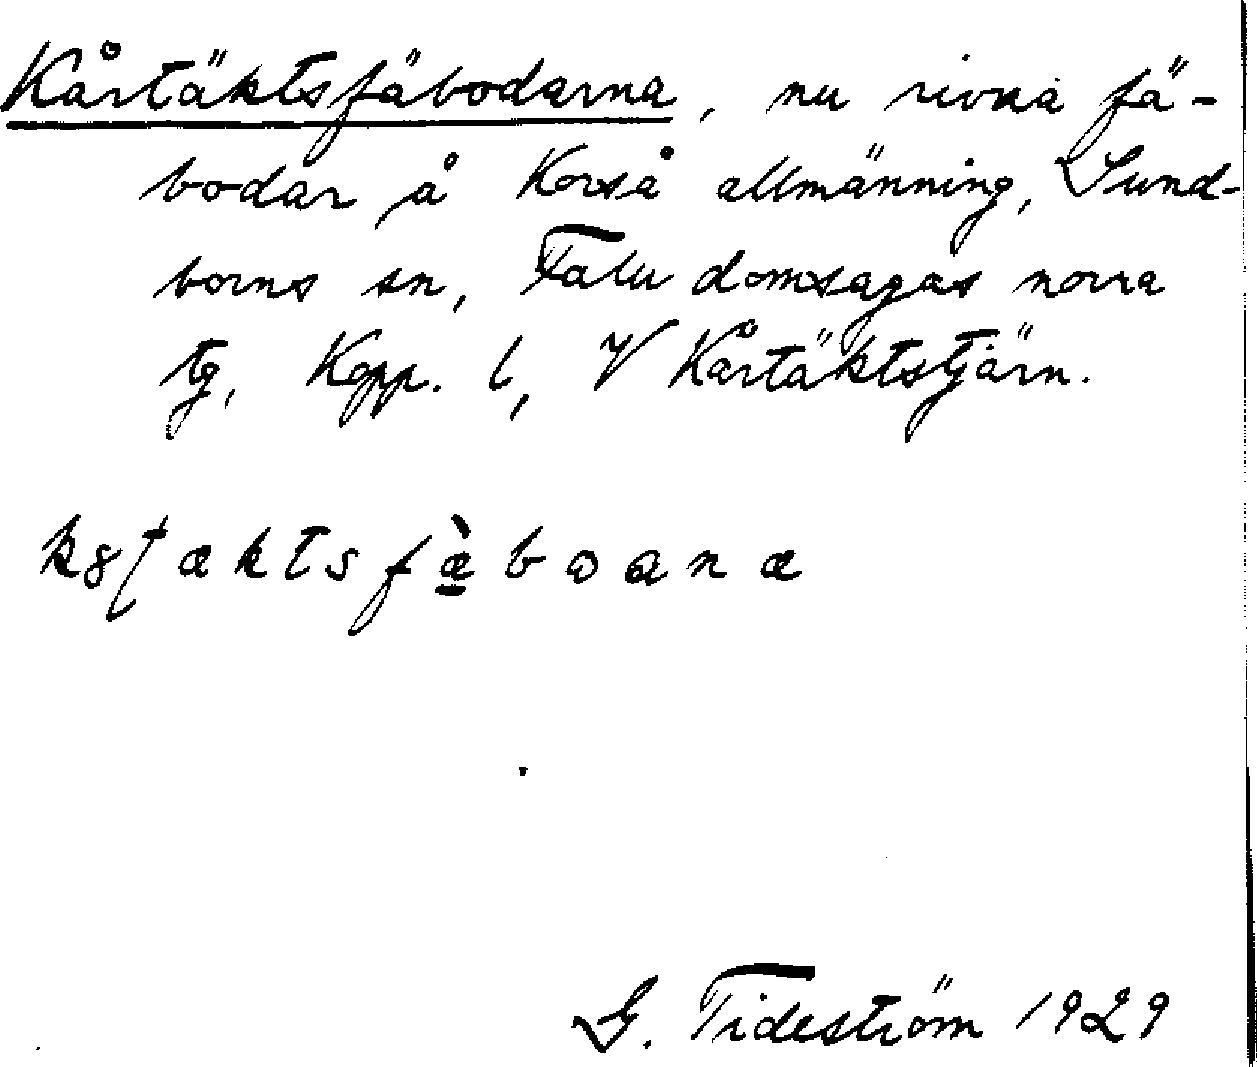 Kårtäktsfäbodarna, nu rivna fä-
bodar å Korså allmänning, Sund-
borns sn, Falu domsagas norra
tg, Kopp. l, V Kårtäktstjärn.
G. Tideström 1929